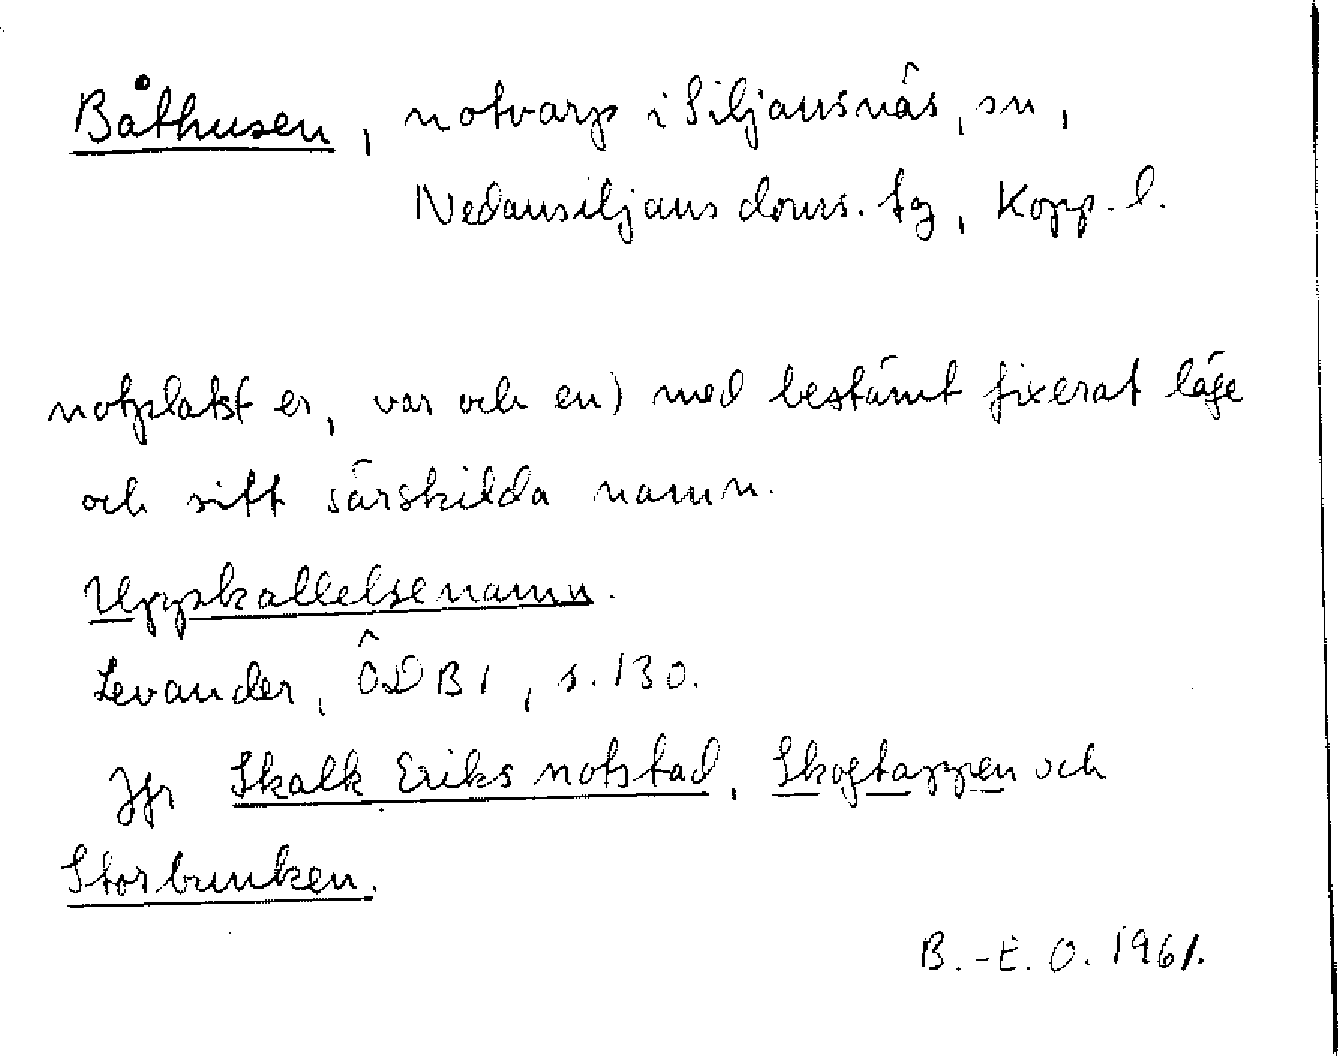 Båthusen, notvarp i Siljansnäs, sn,
Nedansiljans doms. tg, Kopp. l.
notplatser, var och en) med bestämt fixerat läge
och sitt särskilda namn.
Uppkallelsenamn.
Levander, ÖDB 1, s. 130.
Jfr Skalk Eriks notstad, Skogtappen och
Storbunken.
B.-E. O. 1961.